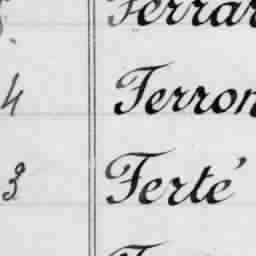 Ferrar
4 Ferron
3 Ferté